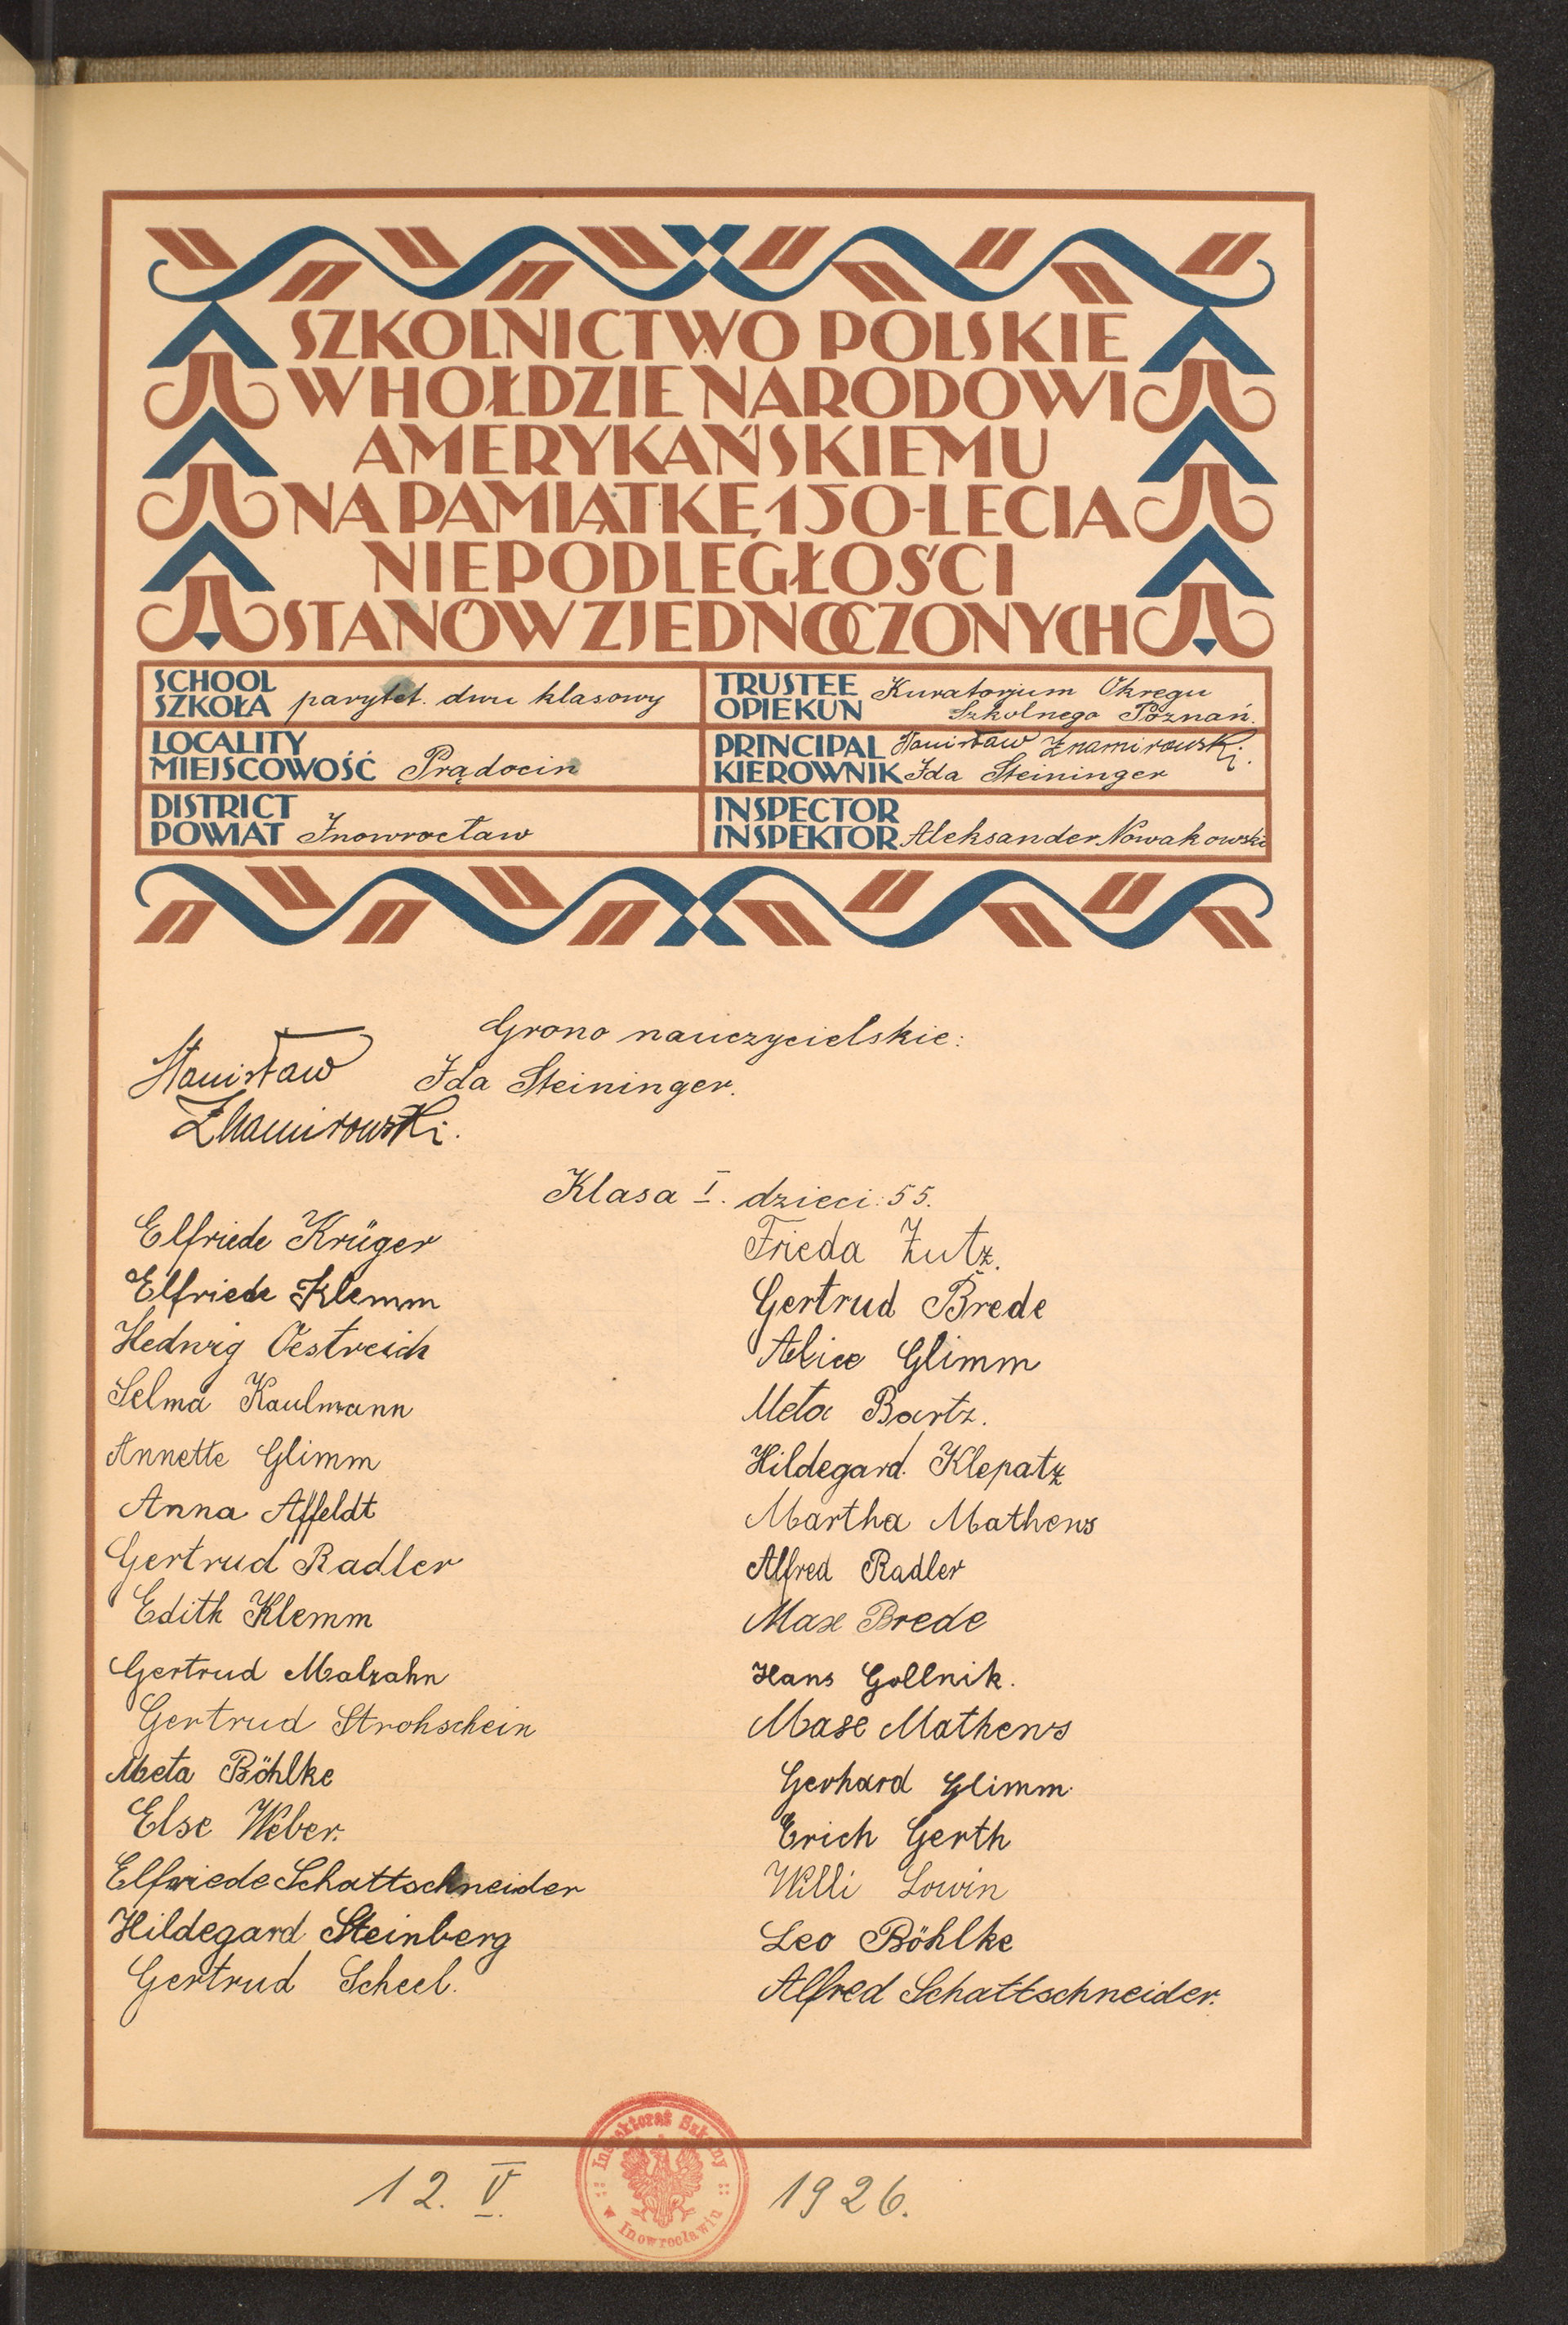 SZKOLNICTWO POLSKIE
W HOŁDZIE NARODOWI
AMERYKAŃSKIEMU
NA PAMIĄTKĘ 150-LECIA
NIEPODLEGŁOŚCI
STANÓW ZJEDNOCZONYCH
SCHOOL
SZKOŁA parytet. dwu klasowy
TRUSTEE
OPIEKUN Kuratorjum Okręgu
Szkolnego Poznań.
LOCALITY
MIEJSCOWOŚĆ Prądocin
PRINCIPAL Stanisław Znamirowski.
KIEROWNIK Ida Steininger
DISTRICT
POWIAT Inowrocław
INSPECTOR
INSPEKTOR Aleksander Nowakowski
Grono nauczycielskie:
Stanisław
Znamirowski.
Ida Steininger.
Klasa I. dzieci: 55.
Elfriede Krüger
Elfriede Klemm
Hedwig Oestreich
Selma Kaulmann
Annette Glimm
Anna Affeldt
Gertrud Radler
Edith Klemm
Gertrud Malzahn
Gertrud Strohschein
Meta Böhlke
Else Weber.
Elfriede Schattschneider
Hildegard Steinberg
Gertrud Scheel.
Frieda Zutz.
Gertrud Brede
Alice Glimm
Meta Bartz.
Hildegard Klepatz
Martha Mathews
Alfred Radler
Max Brede
Hans Gollnik.
Max Mathews
Gerhard Glimm.
Erich Gerth
Willi Lowin
Leo Böhlke
Alfred Schattschneider.
Inspektorat Szkolny
w Inowrocławiu
12. V. 1926.